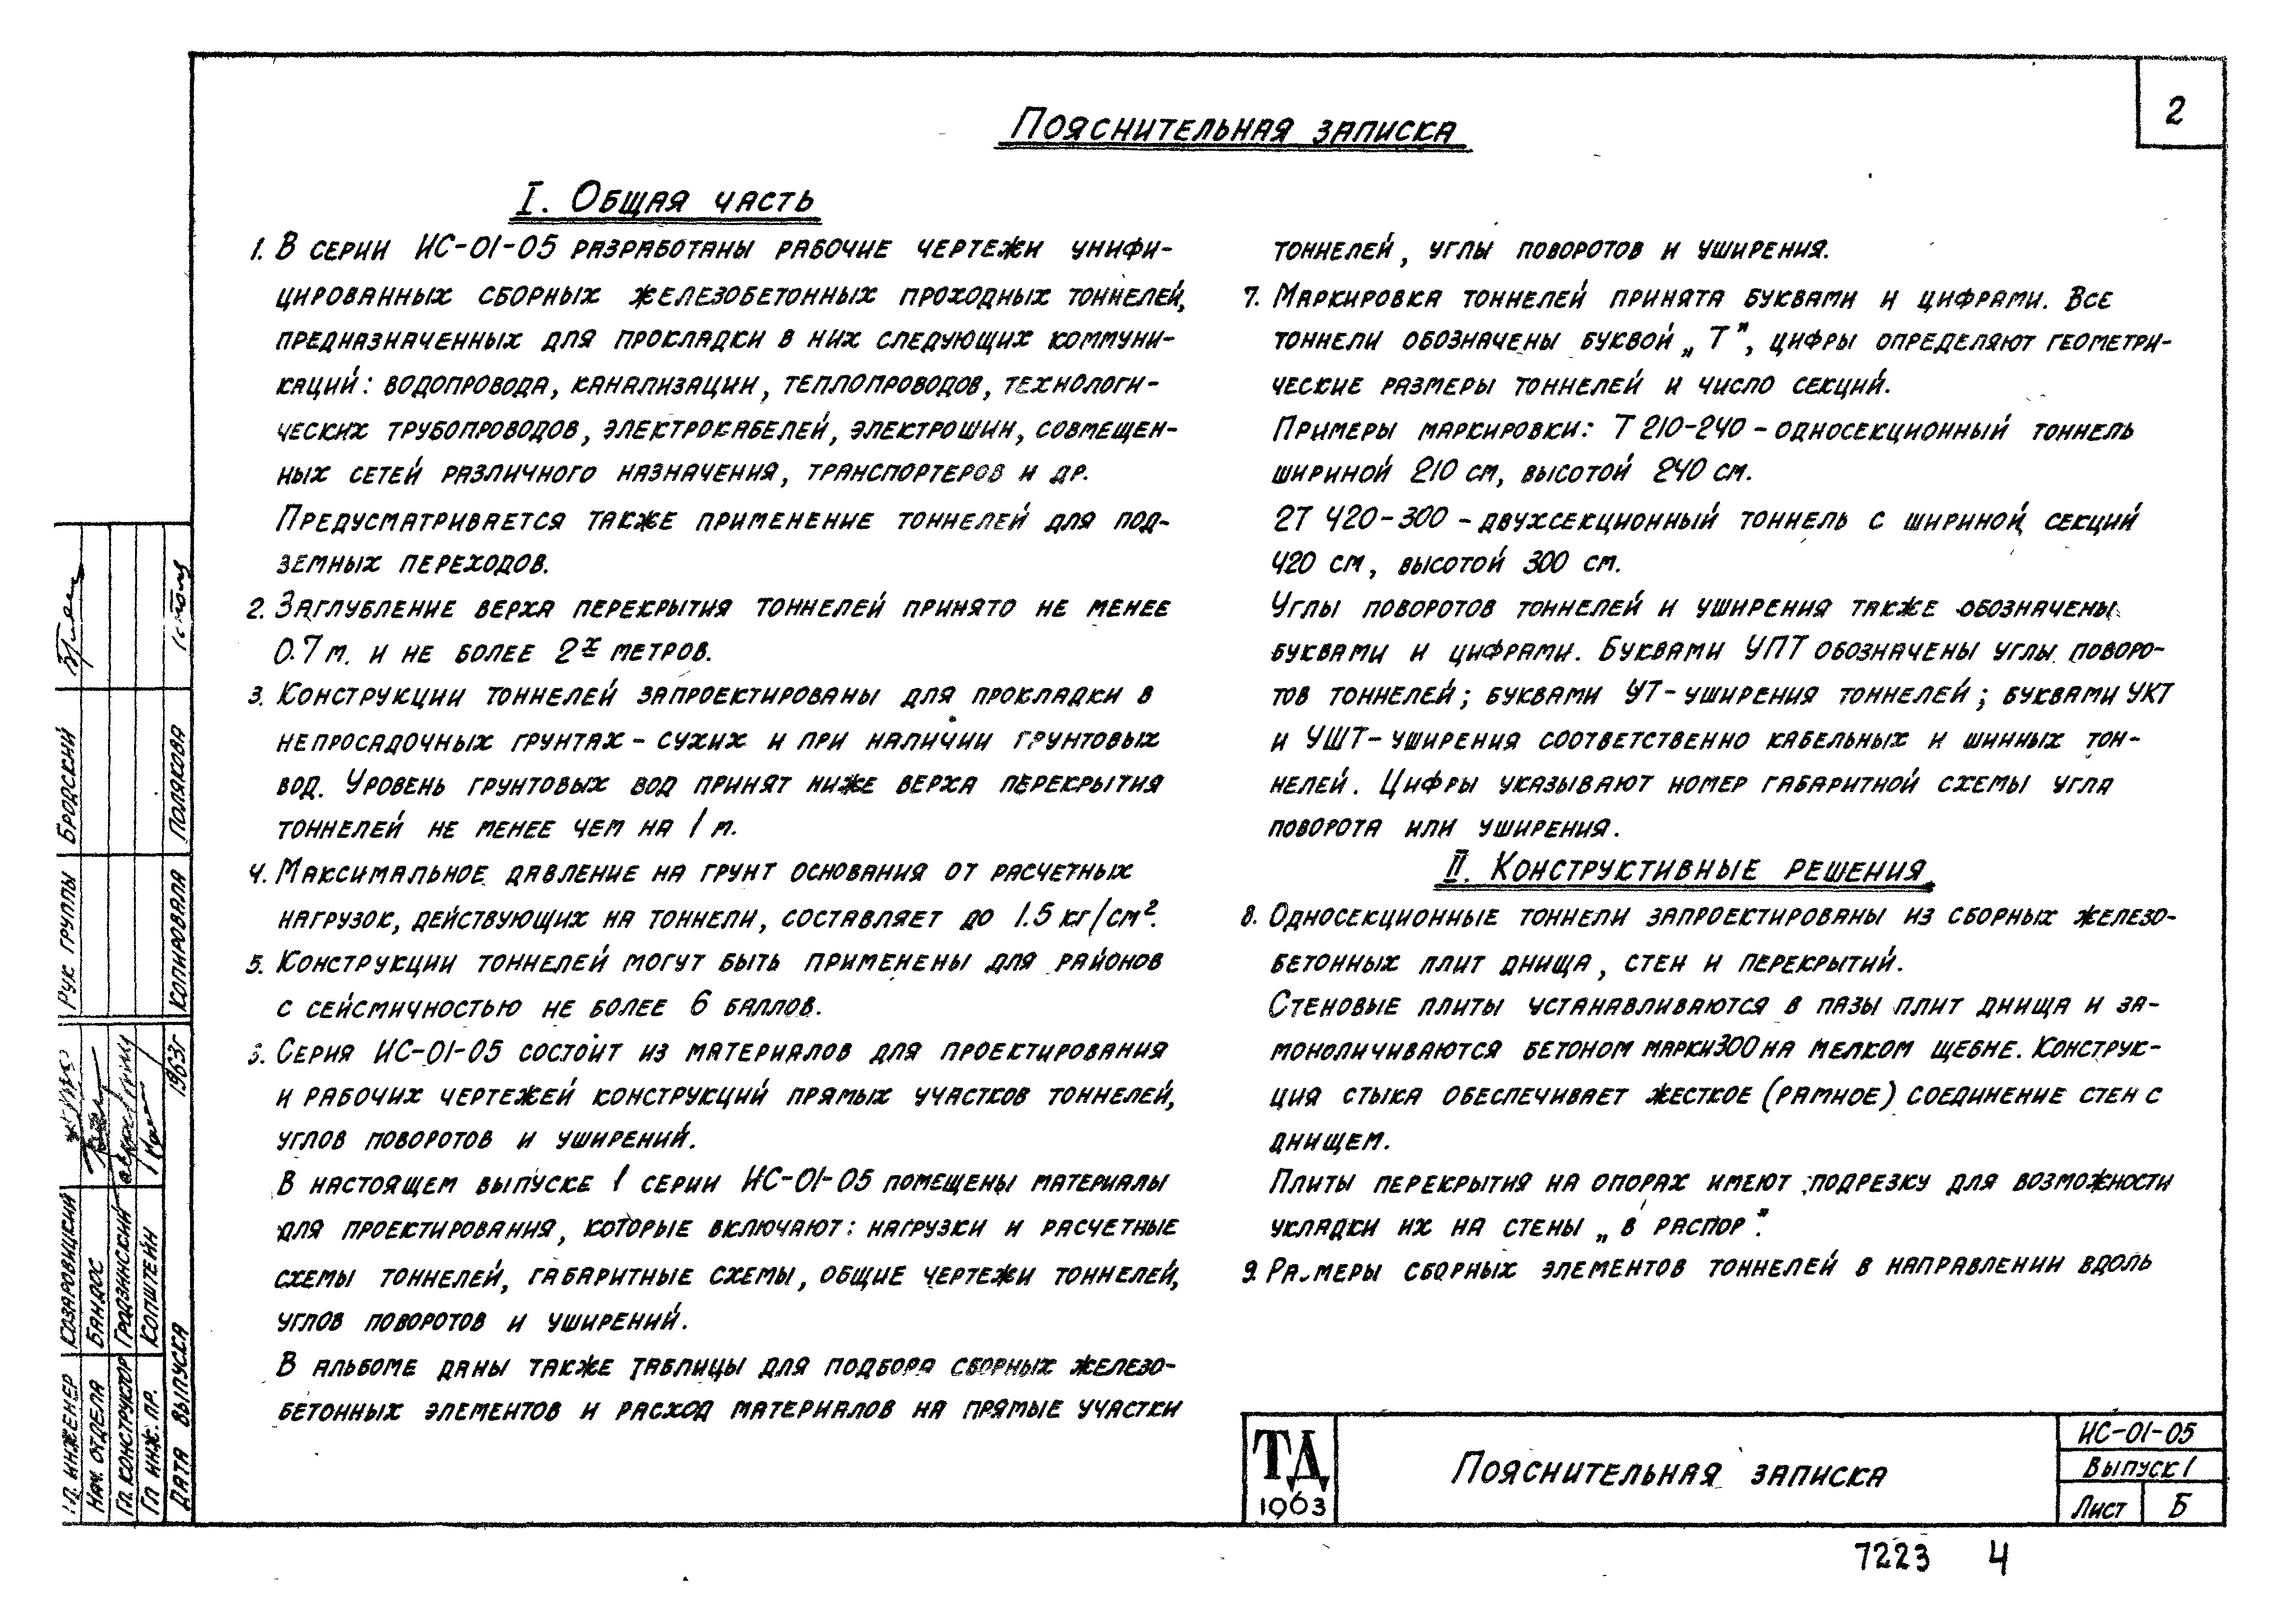 2
Пояснительная записка
I. Общая часть
1. В серии ИС-01-05 разработаны рабочие чертежи унифи-
цированных сборных железобетонных проходных тоннелей,
предназначенных для прокладки в них следующих коммуни-
каций: водопровода, канализации, теплопроводов, технологи-
ческих трубопроводов, электрокабелей, электрошин, совмещен-
ных сетей различного назначения, транспортеров и др.
Предусматривается также применение тоннелей для под-
земных переходов.
2. Заглубление верха перекрытия тоннелей принято не менее
0.7 м. и не более 2х метров.
3. Конструкции тоннелей запроектированы для прокладки в
непросадочных грунтах - сухих и при наличии грунтовых
вод. Уровень грунтовых вод принят ниже верха перекрытия
тоннелей не менее чем на 1 м.
4. Максимальное давление на грунт основания от расчетных
нагрузок, действующих на тоннели, составляет до 1.5 кг/см².
5. Конструкции тоннелей могут быть применены для районов
с сейсмичностью не более 6 баллов.
6. Серия ИС-01-05 состоит из материалов для проектирования
и рабочих чертежей конструкций прямых участков тоннелей,
углов поворотов и уширений.
В настоящем выпуске 1 серии ИС-01-05 помещены материалы
для проектирования, которые включают: нагрузки и расчетные
схемы тоннелей, габаритные схемы, общие чертежи тоннелей,
углов поворотов и уширений.
В альбоме даны также таблицы для подбора сборных железо-
бетонных элементов и расход материалов на прямые участки
тоннелей, углы поворотов и уширения.
7. Маркировка тоннелей принята буквами и цифрами. Все
тоннели обозначены буквой „Т", цифры определяют геометри-
ческие размеры тоннелей и число секций.
Примеры маркировки: Т 210-240 - односекционный тоннель
шириной 210 см, высотой 240 см.
2Т 420-300 - двухсекционный тоннель с шириной секций
420 см, высотой 300 см.
Углы поворотов тоннелей и уширения также обозначены
буквами и цифрами. Буквами УПТ обозначены углы поворо-
тов тоннелей; буквами УТ - уширения тоннелей; буквами УКТ
и УШТ - уширения соответственно кабельных и шинных тон-
нелей. Цифры указывают номер габаритной схемы угла
поворота или уширения.
II. Конструктивные решения
8. Односекционные тоннели запроектированы из сборных железо-
бетонных плит днища, стен и перекрытий.
Стеновые плиты устанавливаются в пазы плит днища и за-
моноличиваются бетоном марки 300 на мелком щебне. Конструк-
ция стыка обеспечивает жесткое (рамное) соединение стен с
днищем.
Плиты перекрытия на опорах имеют подрезку для возможности
укладки их на стены „в распор".
9. Размеры сборных элементов тоннелей в направлении вдоль
ТД
1963
Пояснительная записка
ИС-01-05
Выпуск 1
Лист Б
7223 4
Гл. инженер Козаровицкий
Нач. отдела Бандос
Гл. конструктор Гродзинский
Гл. инж. пр. Копштейн
Дата выпуска 1963г
Рук группы Бродский
Копировала Полякова